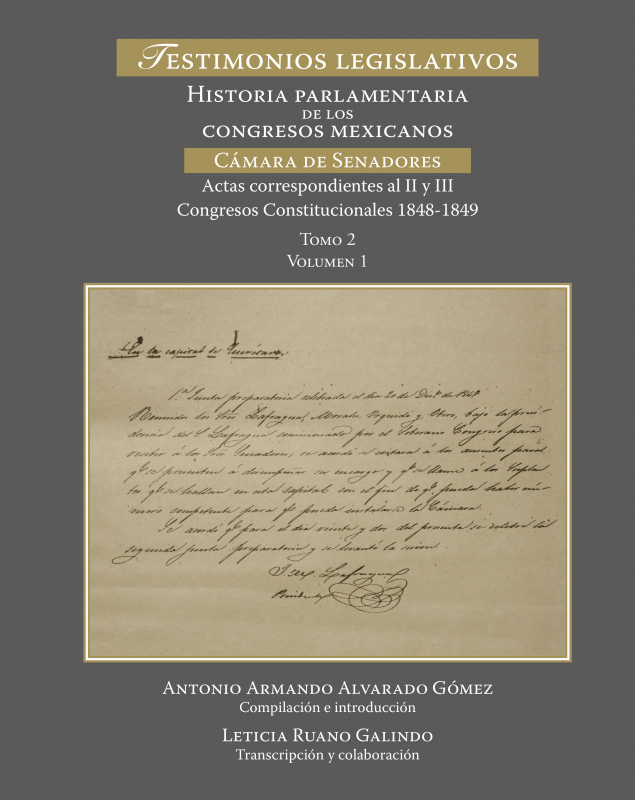 TESTIMONIOS LEGISLATIVOS
HISTORIA PARLAMENTARIA
DE LOS
CONGRESOS MEXICANOS
CÁMARA DE SENADORES
Actas correspondientes al II y III
Congresos Constitucionales 1848-1849
TOMO 2
VOLUMEN 1
En la capital de Querétaro.
1.ª Junta preparatoria celebrada el dia 20 de Dic.e de 1847
Reunidos los Sres Lafragua, Morales, y Otero, bajo la presi-
dencia del S. Lafragua comicionado por el Soberano Congreso para
recibir á los Sres Senadores, se acordó se citara á los ausentes para
q.e se presenten á desempeñar su encargo y q.e se llame á los Suplen-
tes q.e se hallan en esta capital con el fin de q.e pueda haber nú-
mero competente para q.e pueda instalarse la Cámara.
Se acordó q.e para el dia veinte y dos del presente se celebre la
segunda junta preparatoria y se levantó la sesion.
J. M. Lafragua
Presidente
ANTONIO ARMANDO ALVARADO GÓMEZ
Compilación e introducción
LETICIA RUANO GALINDO
Transcripción y colaboración